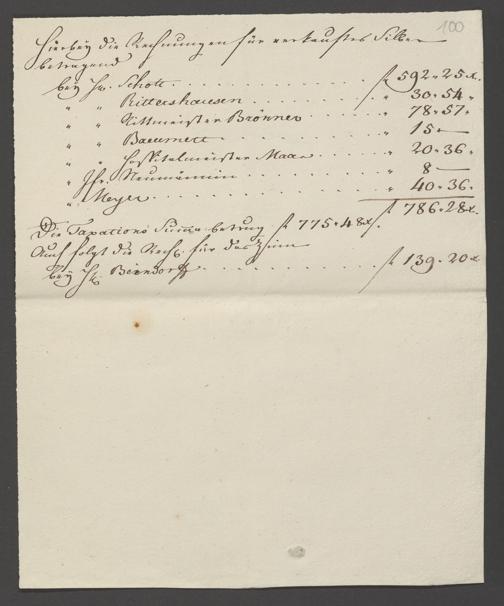 100
Hierbey die Rechnungen für verkauftes Silber
betragend
bey Hr. Schott . . . . . . . . . . . . f 592 " 25 x.
" " Rittershausen . . . . . . . . . " 30 " 54 "
" " Rittmeister Brönner . . . . . . " 78 " 57 "
" " . . . . . . . . . . . . " 15 " —
" " Hospitalmeister Maas . . . . . . " 20 " 36 "
" Jfr. . . . . . . . . . . " 8 —
" Meyer . . . . . . . . . . . . " 40 " 36 "
f 786 " 28 x.
Die Taxations Summe betrug f 775 " 48 x.
Auch folgt die Rech. für das Zinn
bey Hr. . . . . . . . . . . f 139 " 20 x